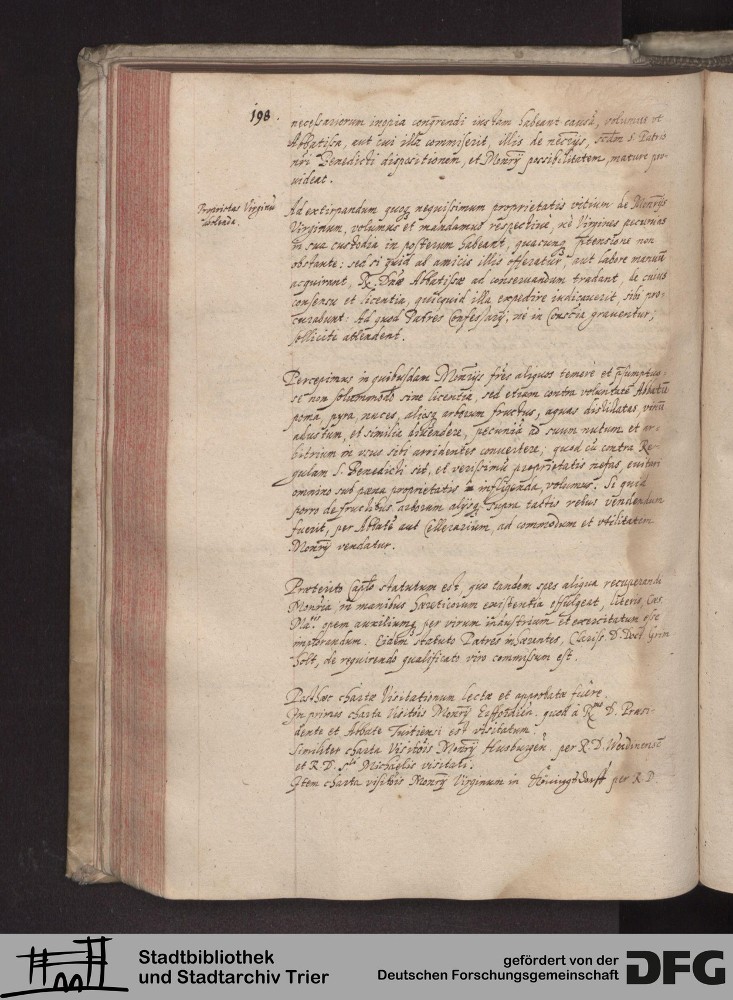 198.
necessariorum inopia congrendi iustam habeant causā, volumus vt
Abbatissa, aut cui illa commiserit, illis de necrijs, scdm S. Patris
nri Benedicti dispositionem, et Monrij possibilitatem, mature pro-
videat.
Proprietas Virginū
abolenda.
Ad extirpandum quoq nequissimum proprietatis vitium de Monrijs
Virginum, volumus et mandamus respectiue, ne Virgines pecunias
in sua custodia in posterum habeant, quacunq ptensione non
obstante: sed si quid ab amicis illis offeratur, aut labore manuū
acquirant, R. Dnae Abbatissae ad conseruandum tradant, de cuius
consensu et licentia, quicquid illa expedire iudicauerit, sibi pro-
curabunt: Ad quod Patres Confessarij, ne in Conscia grauentur,
solliciti attendent.
Percepimus in quibusdam Monrijs frēs aliquos temerè et psumptuo-
sè non solummodo sine licentia, sed etiam contra voluntatē Abbatū
poma, pyra, nuces, aliosq arborum fructus, aquas distillatas, vinū
adustum, et similia diuendere, pecuniā ad suum nutum et ar-
bitrium in vsus sibi arridentes conuertere; quod cū contra Re-
gulam S. Benedicti sit, et verissimū proprietatis nefas, euitari
omnino sub paena proprietatis infligenda, volumus. Si quid
porro de fructibus arborum alijsq supra tactis rebus vendendum
fuerit, per Abbatē aut Cellerarium, ad commodum et vtilitatem
Monrij vendatur.
Praeterito Caplo statutum est, quo tandem spes aliqua recuperandi
Monria in manibus haereticorum existentia effulgeat, literis Caes.
Matis opem auxiliumq per virum industrium et exercitatum esse
implorandum. Eidem statuto Patres inhaerentes, Clariss. D. Doct. Grim
holt, de requirendo qualificato viro commissum est.
Posthaec chartae Visitationum lectae et approbatae fuêre.
Inprimis charta Visitōis Monrij quod a Rmo D. Praesi-
dente et Abbate Tuitiensi est visitatum.
Similiter charta Visitōis Monrij Husburgen. per R. D. Werdinensē
et R. D. Sti Michaelis visitati.
Item charta visitōis Monrij Virginum in per R. D.
Stadtbibliothek
und Stadtarchiv Trier
gefördert von der
Deutschen Forschungsgemeinschaft
DFG